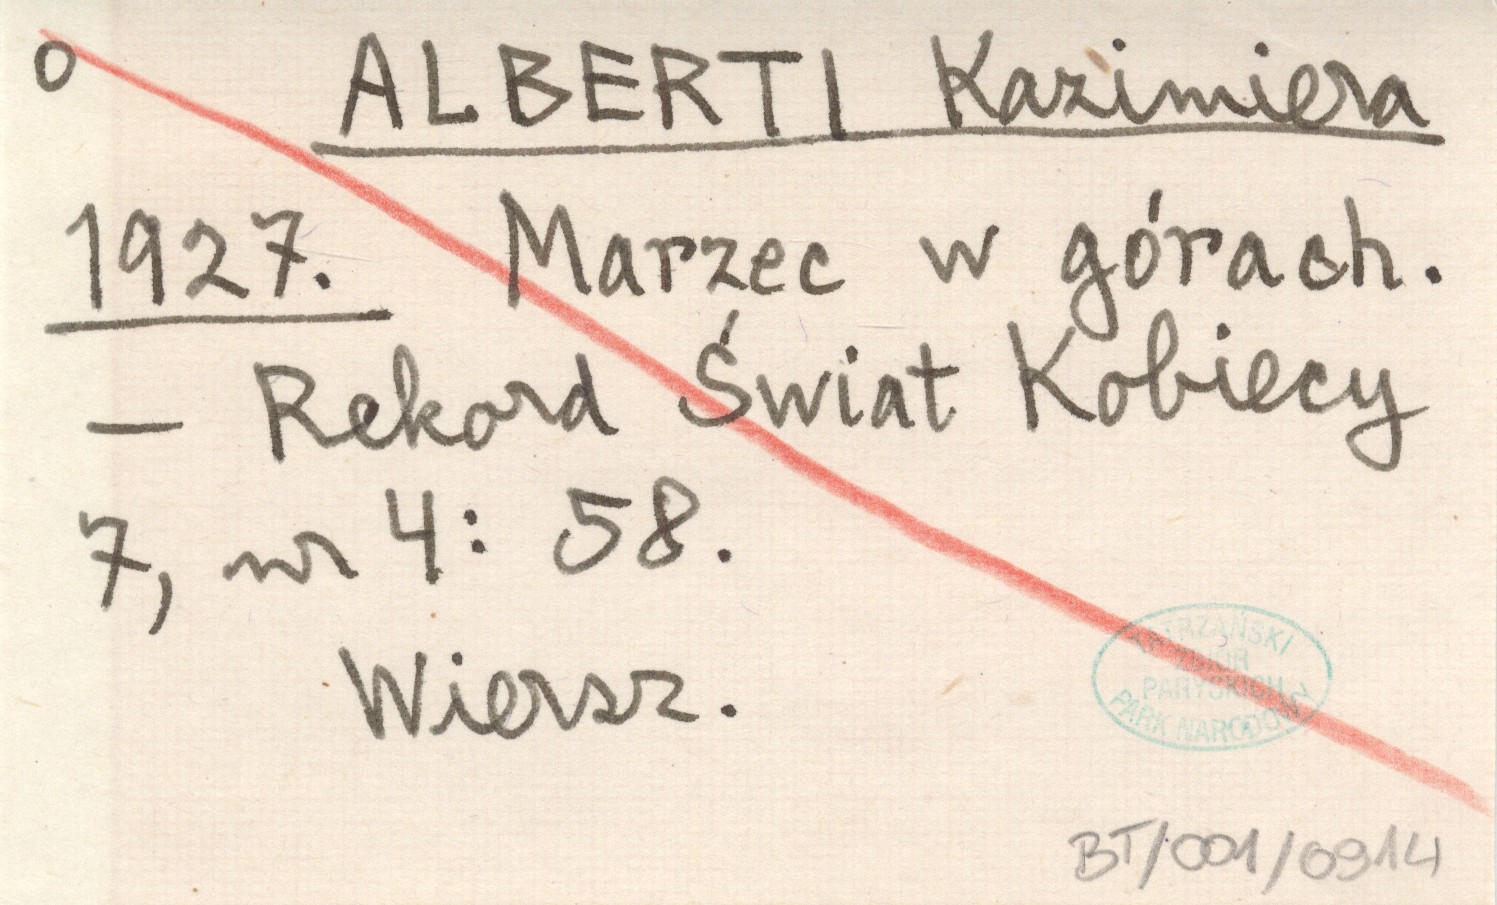 o ALBERTI Kazimiera
1927. Marzec w górach.
— Rekord Świat Kobiecy
7, nr 4: 58.
Wiersz.
TATRZAŃSKI
ZBIÓR
PARYSKICH
PARK NARODOWY
BT/001/0914